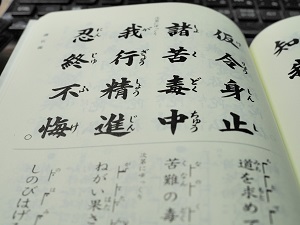 仮令身止
諸苦毒中
我行精進
忍終不悔。
道を求めて
苦難の毒
ねがい果さ
しのびはげ